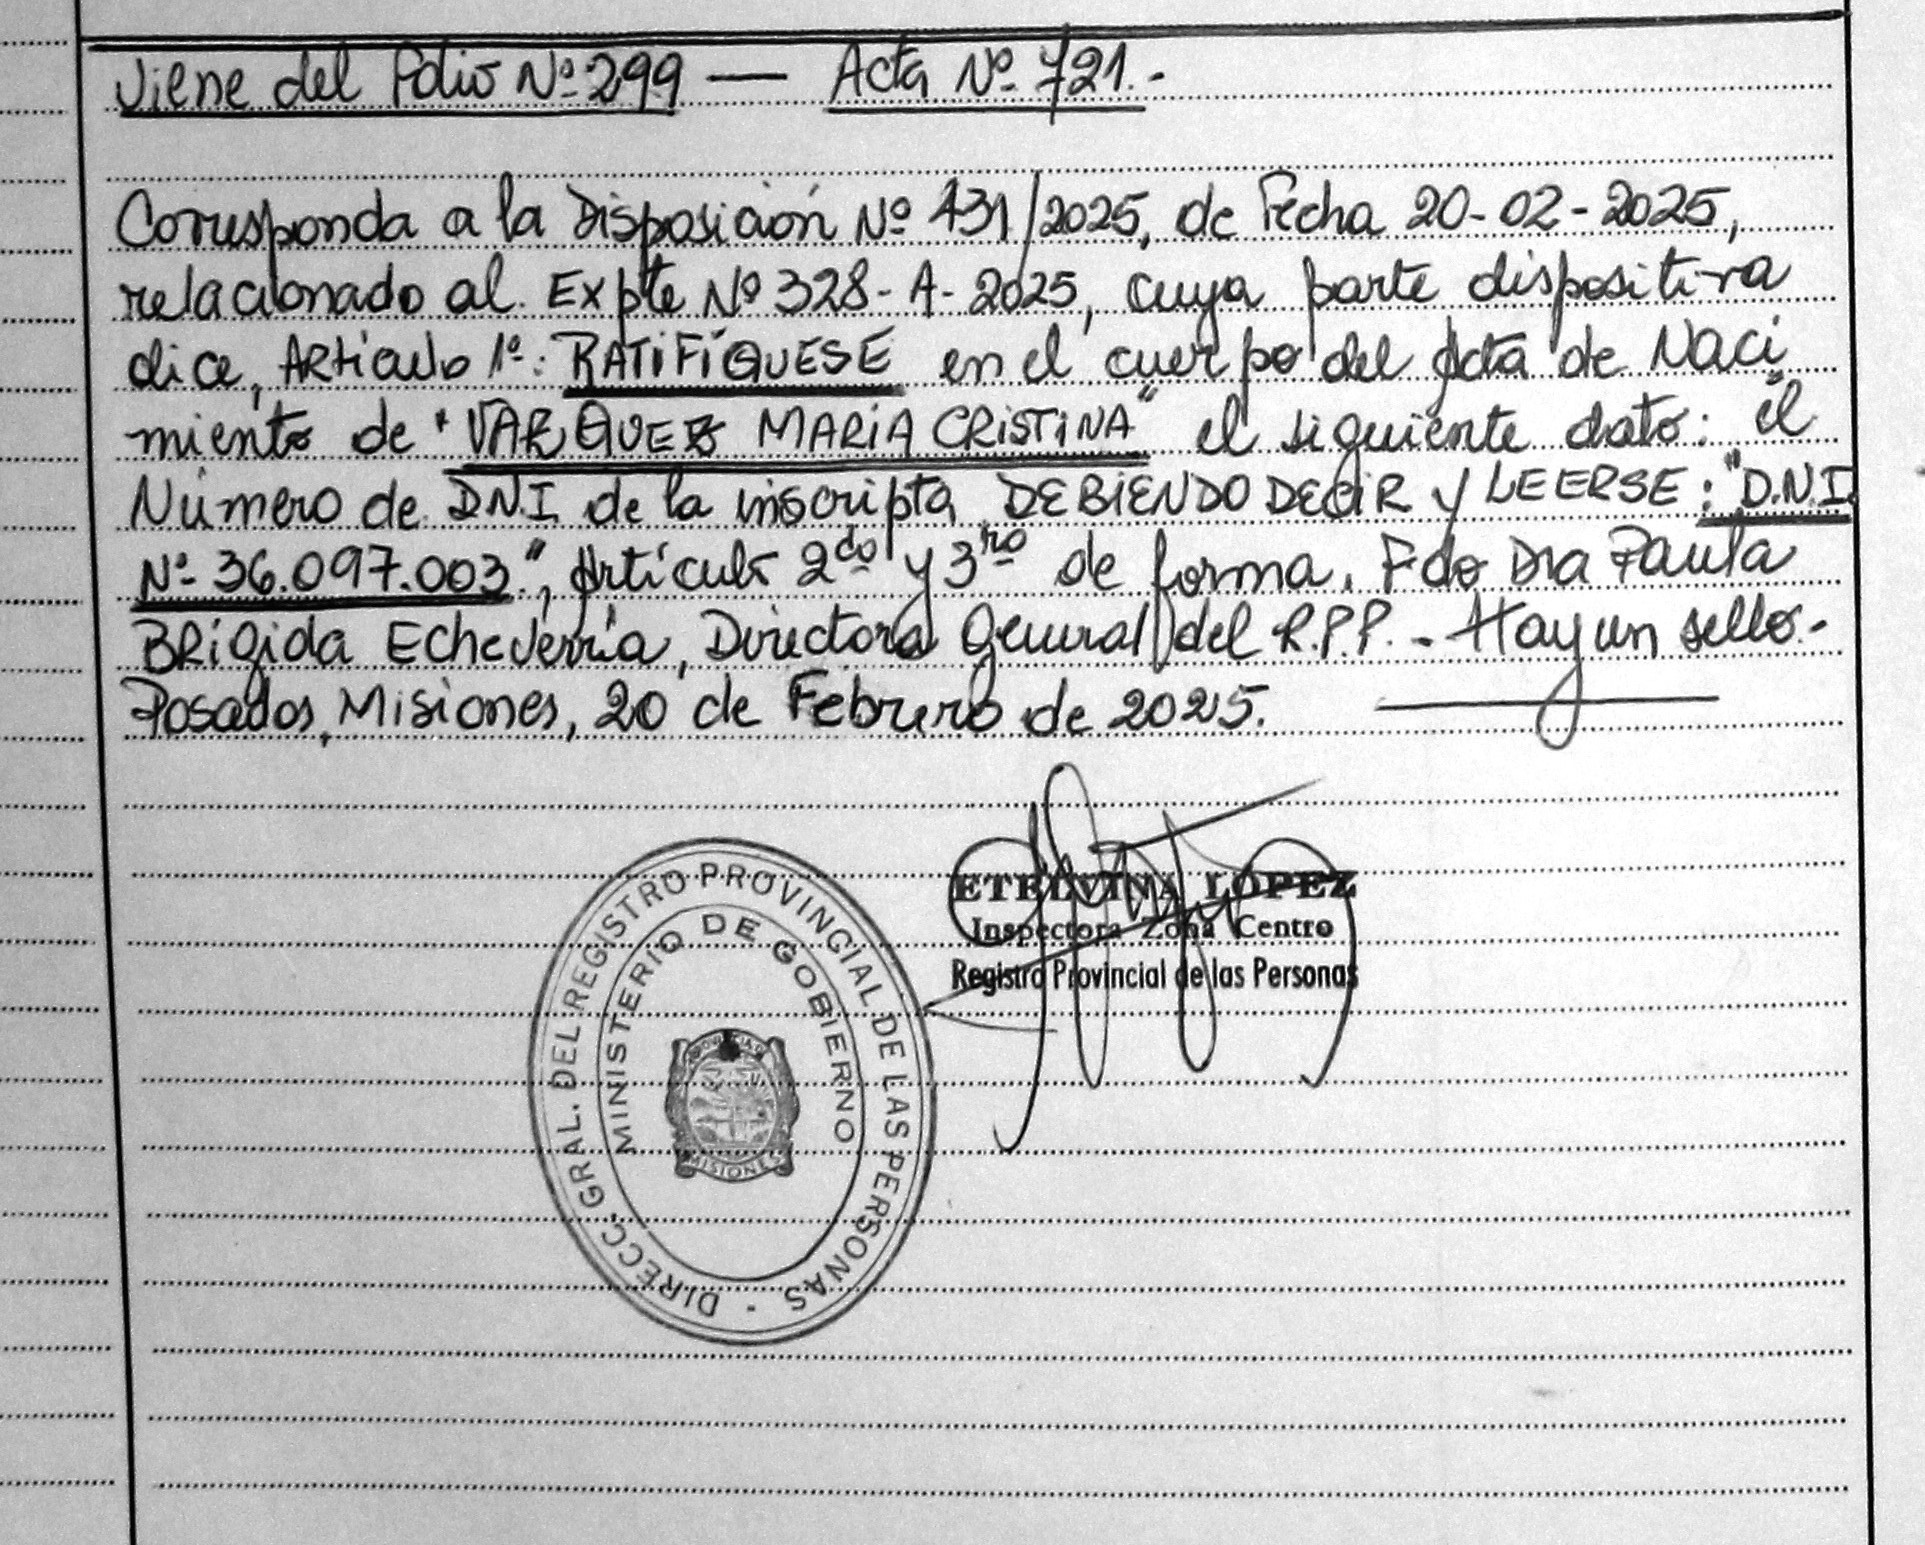 Viene del Folio Nº 299 — Acta Nº 721.-
Corresponda a la Disposición Nº 431/2025, de Fecha 20-02-2025,
relacionado al Expte Nº 328-A-2025, cuya parte dispositiva
dice, Artículo 1º: RATIFÍQUESE en el cuerpo del Acta de Naci
miento de "VARQUEZ MARIA CRISTINA" el siguiente dato: el
Número de D.N.I. de la inscripta, DEBIENDO DECIR y LEERSE: "D.N.I.
Nº 36.097.003.", Artículo 2do y 3ro de forma. Fdo Dra Paula
Brígida Echeverría, Directora General del R.P.P. - Hay un sello.-
Posadas, Misiones, 20 de Febrero de 2025.
ETELVINA LOPEZ
Inspectora Zona Centro
Registro Provincial de las Personas
DIRECC. GRAL. DEL REGISTRO PROVINCIAL DE LAS PERSONAS
MINISTERIO DE GOBIERNO
MISIONES